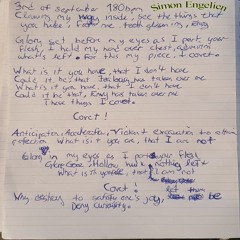 3rd of september 180bpm
Simon Engelien
Clawing my way inside, see the things that
you hide, Not me, teeth gleaming, Envy
Glory set before my eyes as I part your
flesh, I hold my hand over chest,
what's left. For this my price, I covet.
What is it you have, that I don't have
Could it be that Jealousy has taken over me
What is it you have, that I don't have
Could it be that, Envy has taken over me
These things I covet.
Covet!
Anticipation, Accelerate, Violent execution to attain
perfection What is it you are, that I am not
Glory in my eyes as I part your flesh
hollow husk nothing left
What is is you are, that I am not
Covet!
Why destroy to satisfy one's joy, let them
Deny curiosity.